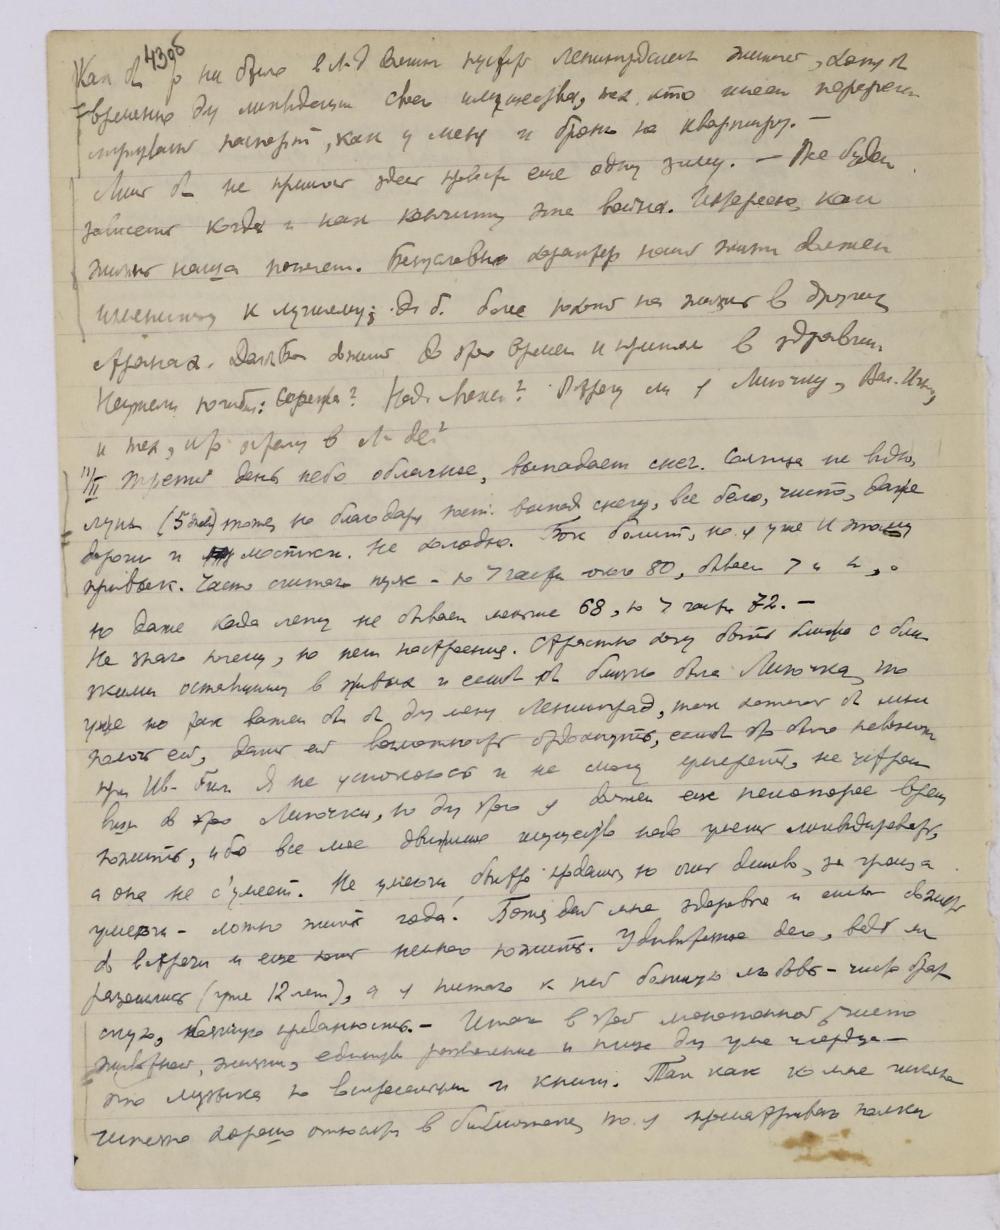 43об
Как б р ни было в Л-д пустят Ленинградских жителей, хотя б
временно для ликвидации своего имущества, тех, кто имеет
паспорт, как у меня и бронь на квартиру. —
Лишь б не пришлось здесь провести еще одну зиму. — Все будет
зависеть когда и как кончится эта война. Интересно, как
жизнь наша потечет. Безусловно характер нашей жизни должен
измениться к лучшему; д. б. более похож на жизнь в других
странах. Дай Бог дожить до этого времени и притом в здравии.
Неужели погибли: Сережа? Надя? Встречу ли я Линочку, Вал.
и тех, что остались в Л-де?
11/II Третий день небо облачное, выпадает снег. Солнца не видно,
луны (5 дней) тоже, но благодаря выпавшему снегу, все бело, чисто, даже
дороги и мостики. Не холодно. Бок болит, но я уже к этому
привык. Часто считаю пульс – в 7 часов около 80, бывает
но даже когда лежу не бывает меньше 68, в 7 часов 72. —
Не знаю почему, но нет настроения. Страстно хочу быть ближе с близ-
кими оставшимися в живых и если б близко была Линочка, то
уже не так важен был б для меня Ленинград, так хотелось б мне
помочь ей, дать ей возможность отдохнуть, если это было невозможно
при Я не успокоюсь и не смогу умереть, не
до этого Линочки, но для этого я должен еще некоторое время
пожить, ибо все мое движимое имущество надо уметь ликвидировать,
а она не с'умеет. Не умеючи быстро продашь но очень дешево, за гроши а
умеючи – можно жить года! Боже дай мне здоровья и силы дожить
до встречи и еще хоть немного пожить. Удивительное дело, ведь мы
разошлись (уже 12 лет), а я питаю к ней большую любовь – чисто брат-
скую, большую преданность. – Итак в этой монотонной чисто
животной, жизни, единств. развлечение и пища для ума и сердца –
это музыка по воскресеньям и книги. Так как ко мне
хорошо относятся в библиотеке, то я просматриваю полки